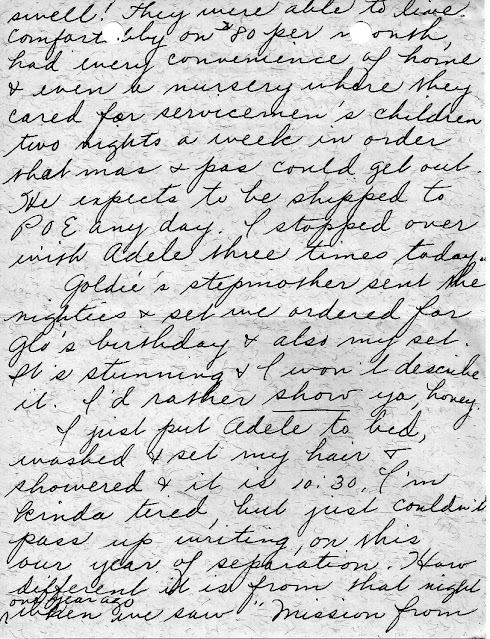 swell! They were able to live
comfortably on $80 per month,
had every convenience of home
& even a nursery where they
cared for servicemen's children
two nights a week in order
that mas & pas could get out.
He expects to be shipped to
POE any day. I stopped over
with Adele three times today.
Goldie's stepmother sent the
nighties & set we ordered for
Glo's birthday & also my set.
It's stunning & I won't describe
it. I'd rather show ya, honey.
I just put Adele to bed,
washed & set my hair &
showered & it is 10:30. I'm
kinda tired, but just couldn't
pass up writing, on this
our year of separation. How
different it is from that night
one year ago
when we saw "Mission from